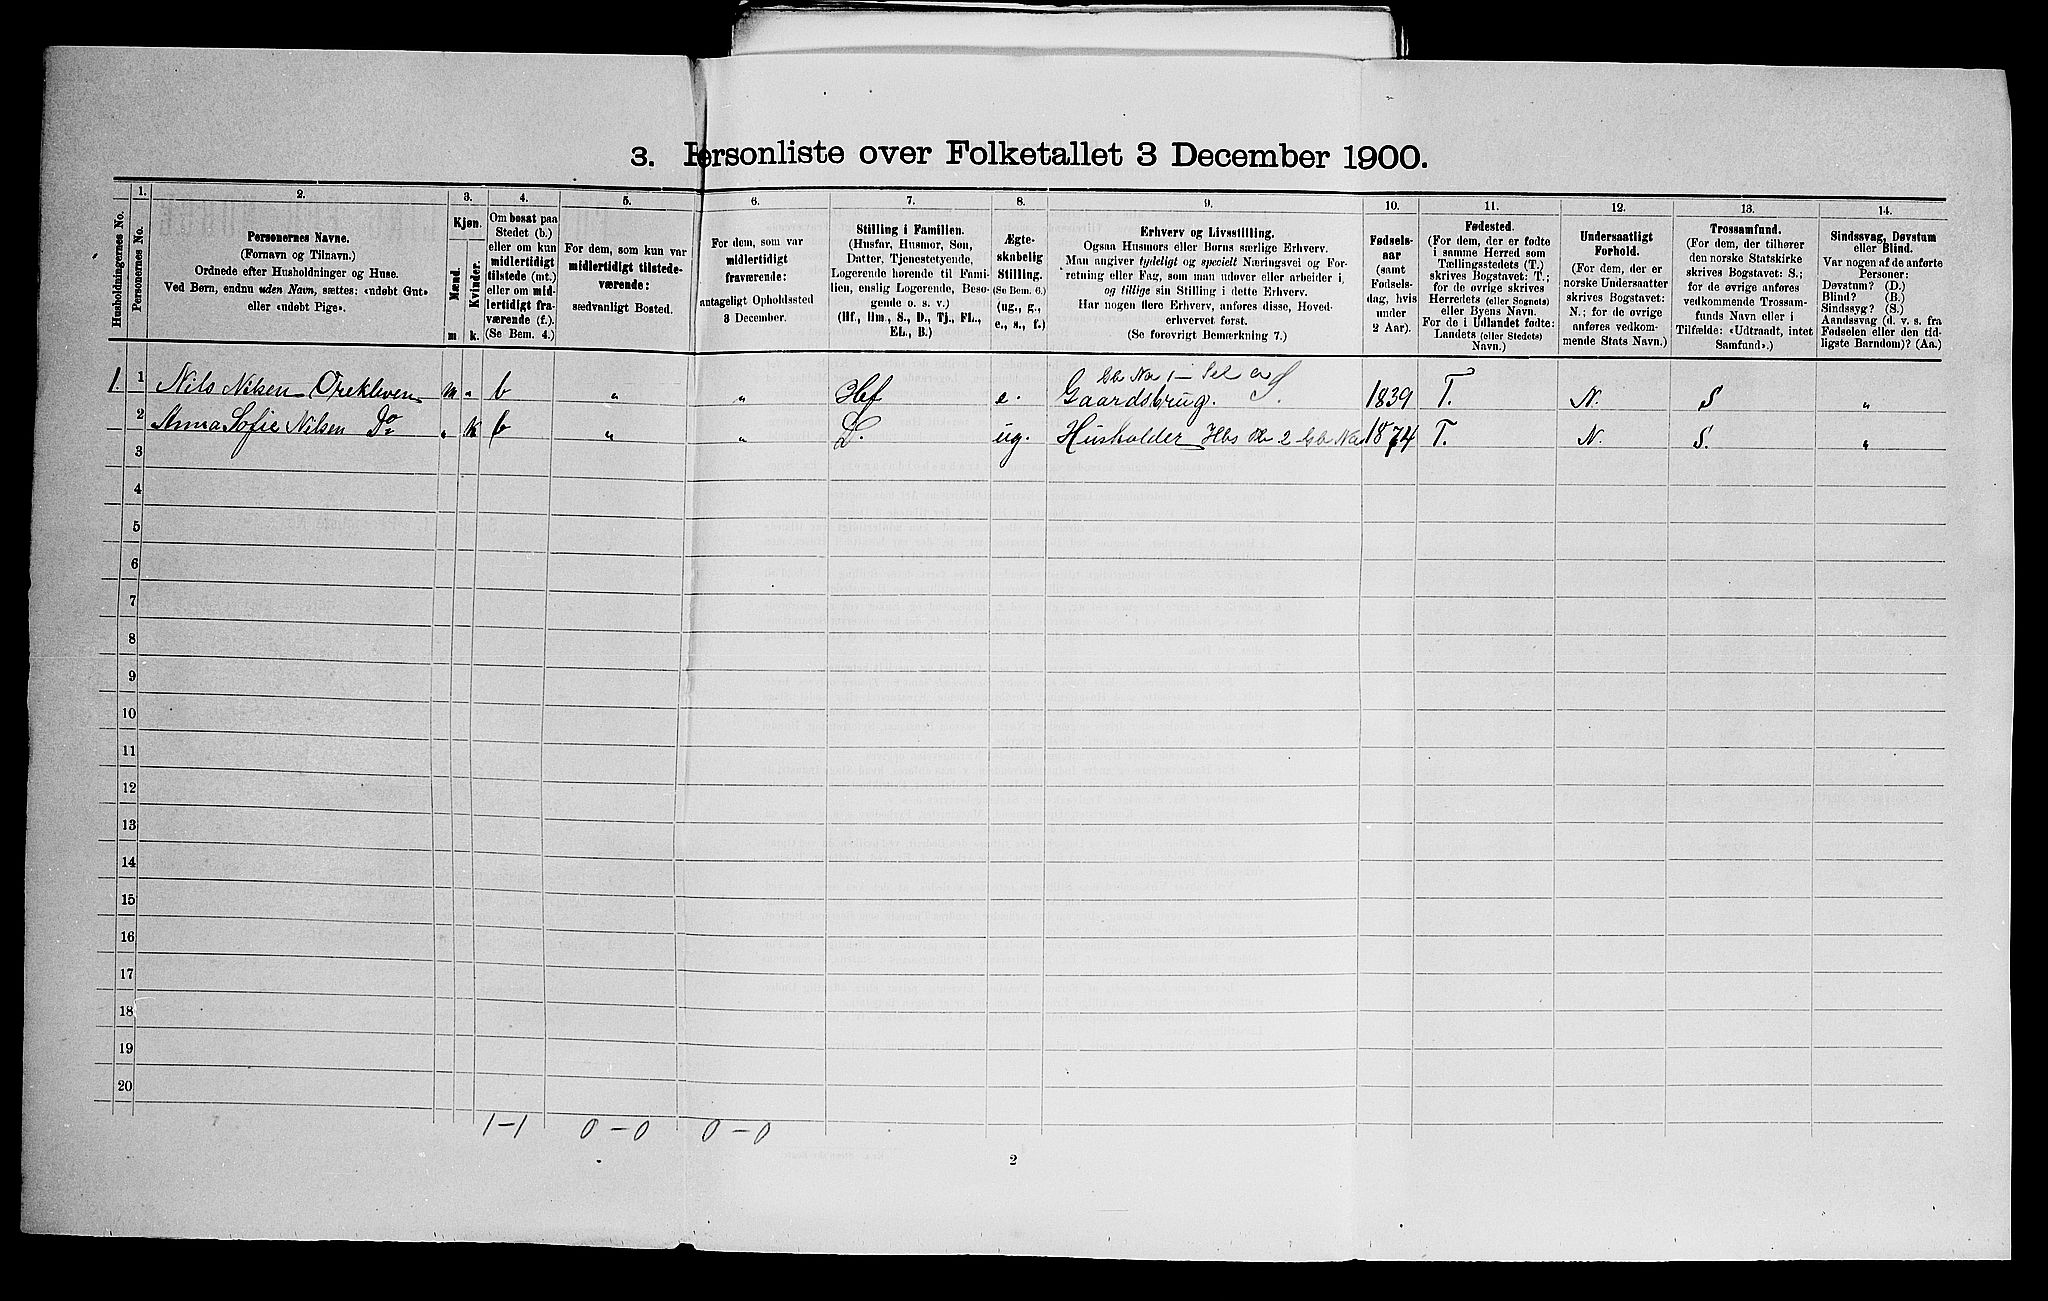 3. Personliste over Folketallet 3 December 1900.
Husholdningernes No.
1.
Personernes No.
2.
Personernes Navne.
(Fornavn og Tilnavn.)
Ordnede efter Husholdninger og Huse.
Ved Børn, endnu uden Navn, sættes: «udøbt Gut»
eller «udøbt Pige».
3.
Kjøn.
Mænd.
Kvinder.
m. k.
4.
Om bosat paa
Stedet (b.)
eller om kun
midlertidigt
tilstede (mt.)
eller om mid-
lertidigt fra-
værende (f.).
(Se Bem. 4.)
5.
For dem, som kun var
midlertidigt tilstede-
værende:
sædvanligt Bosted.
6.
For dem, som var
midlertidigt
fraværende:
antageligt Opholdssted
3 December.
7.
Stilling i Familien.
(Husfar, Husmor, Søn,
Datter, Tjenestetyende,
Logerende hørende til Fami-
lien, enslig Logerende, Besø-
gende o. s. v.)
(Hf., Hm., S., D., Tj., FL.,
EL., B.)
8.
Ægte-
skabelig
Stilling.
(Se Bem. 6.)
(ug., g.,
e., s., f.)
9.
Erhverv og Livsstilling.
Ogsaa Husmors eller Børns særlige Erhverv.
Man angiver tydeligt og specielt Næringsvei og For-
retning eller Fag, som man udøver eller arbeider i,
og tillige sin Stilling i dette Erhverv.
Har nogen flere Erhverv, anføres disse, Hoved-
erhvervet først.
(Se forøvrigt Bemærkning 7.)
10.
Fødsels-
aar
(samt
Fødsels-
dag, hvis
under
2 Aar).
11.
Fødested.
(For dem, der er fødte
i samme Herred som
Tællingsstedets (T.)
skrives Bogstavet: T.;
for de øvrige skrives
Herredets (eller Sognets)
eller Byens Navn.
For de i Udlandet fødte:
Landets (eller Stedets)
Navn.)
12.
Undersaatligt
Forhold.
(For dem, der er
norske Undersaatter
skrives Bogstavet:
N.; for de øvrige
anføres vedkom-
mende Stats Navn.)
13.
Trossamfund.
(For dem, der tilhører
den norske Statskirke
skrives Bogstavet: S.;
for de øvrige anføres
vedkommende Trossam-
funds Navn eller i
Tilfælde: «Udtraadt, intet
Samfund».)
14.
Sindssvag, Døvstum
eller Blind.
Var nogen af de anførte
Personer:
Døvstum? (D.)
Blind? (B.)
Sindssyg? (S.)
Aandssvag (d. v. s. fra
Fødselen eller den tid-
ligste Barndom)? (Aa.)
1. 1 Nils Nilsen Orekleven m „ b „ „ Hf e. Gaardsbrug. S. 1839 T. N. S „
2 Anna Sofie Nilsen Do „ k b „ „ D. ug. Husholder 1874 T. N. S. „
3
4
5
6
7
8
9
10
11
12
13
14
15
16
17
18
19
20
1-1 0-0 0-0
2